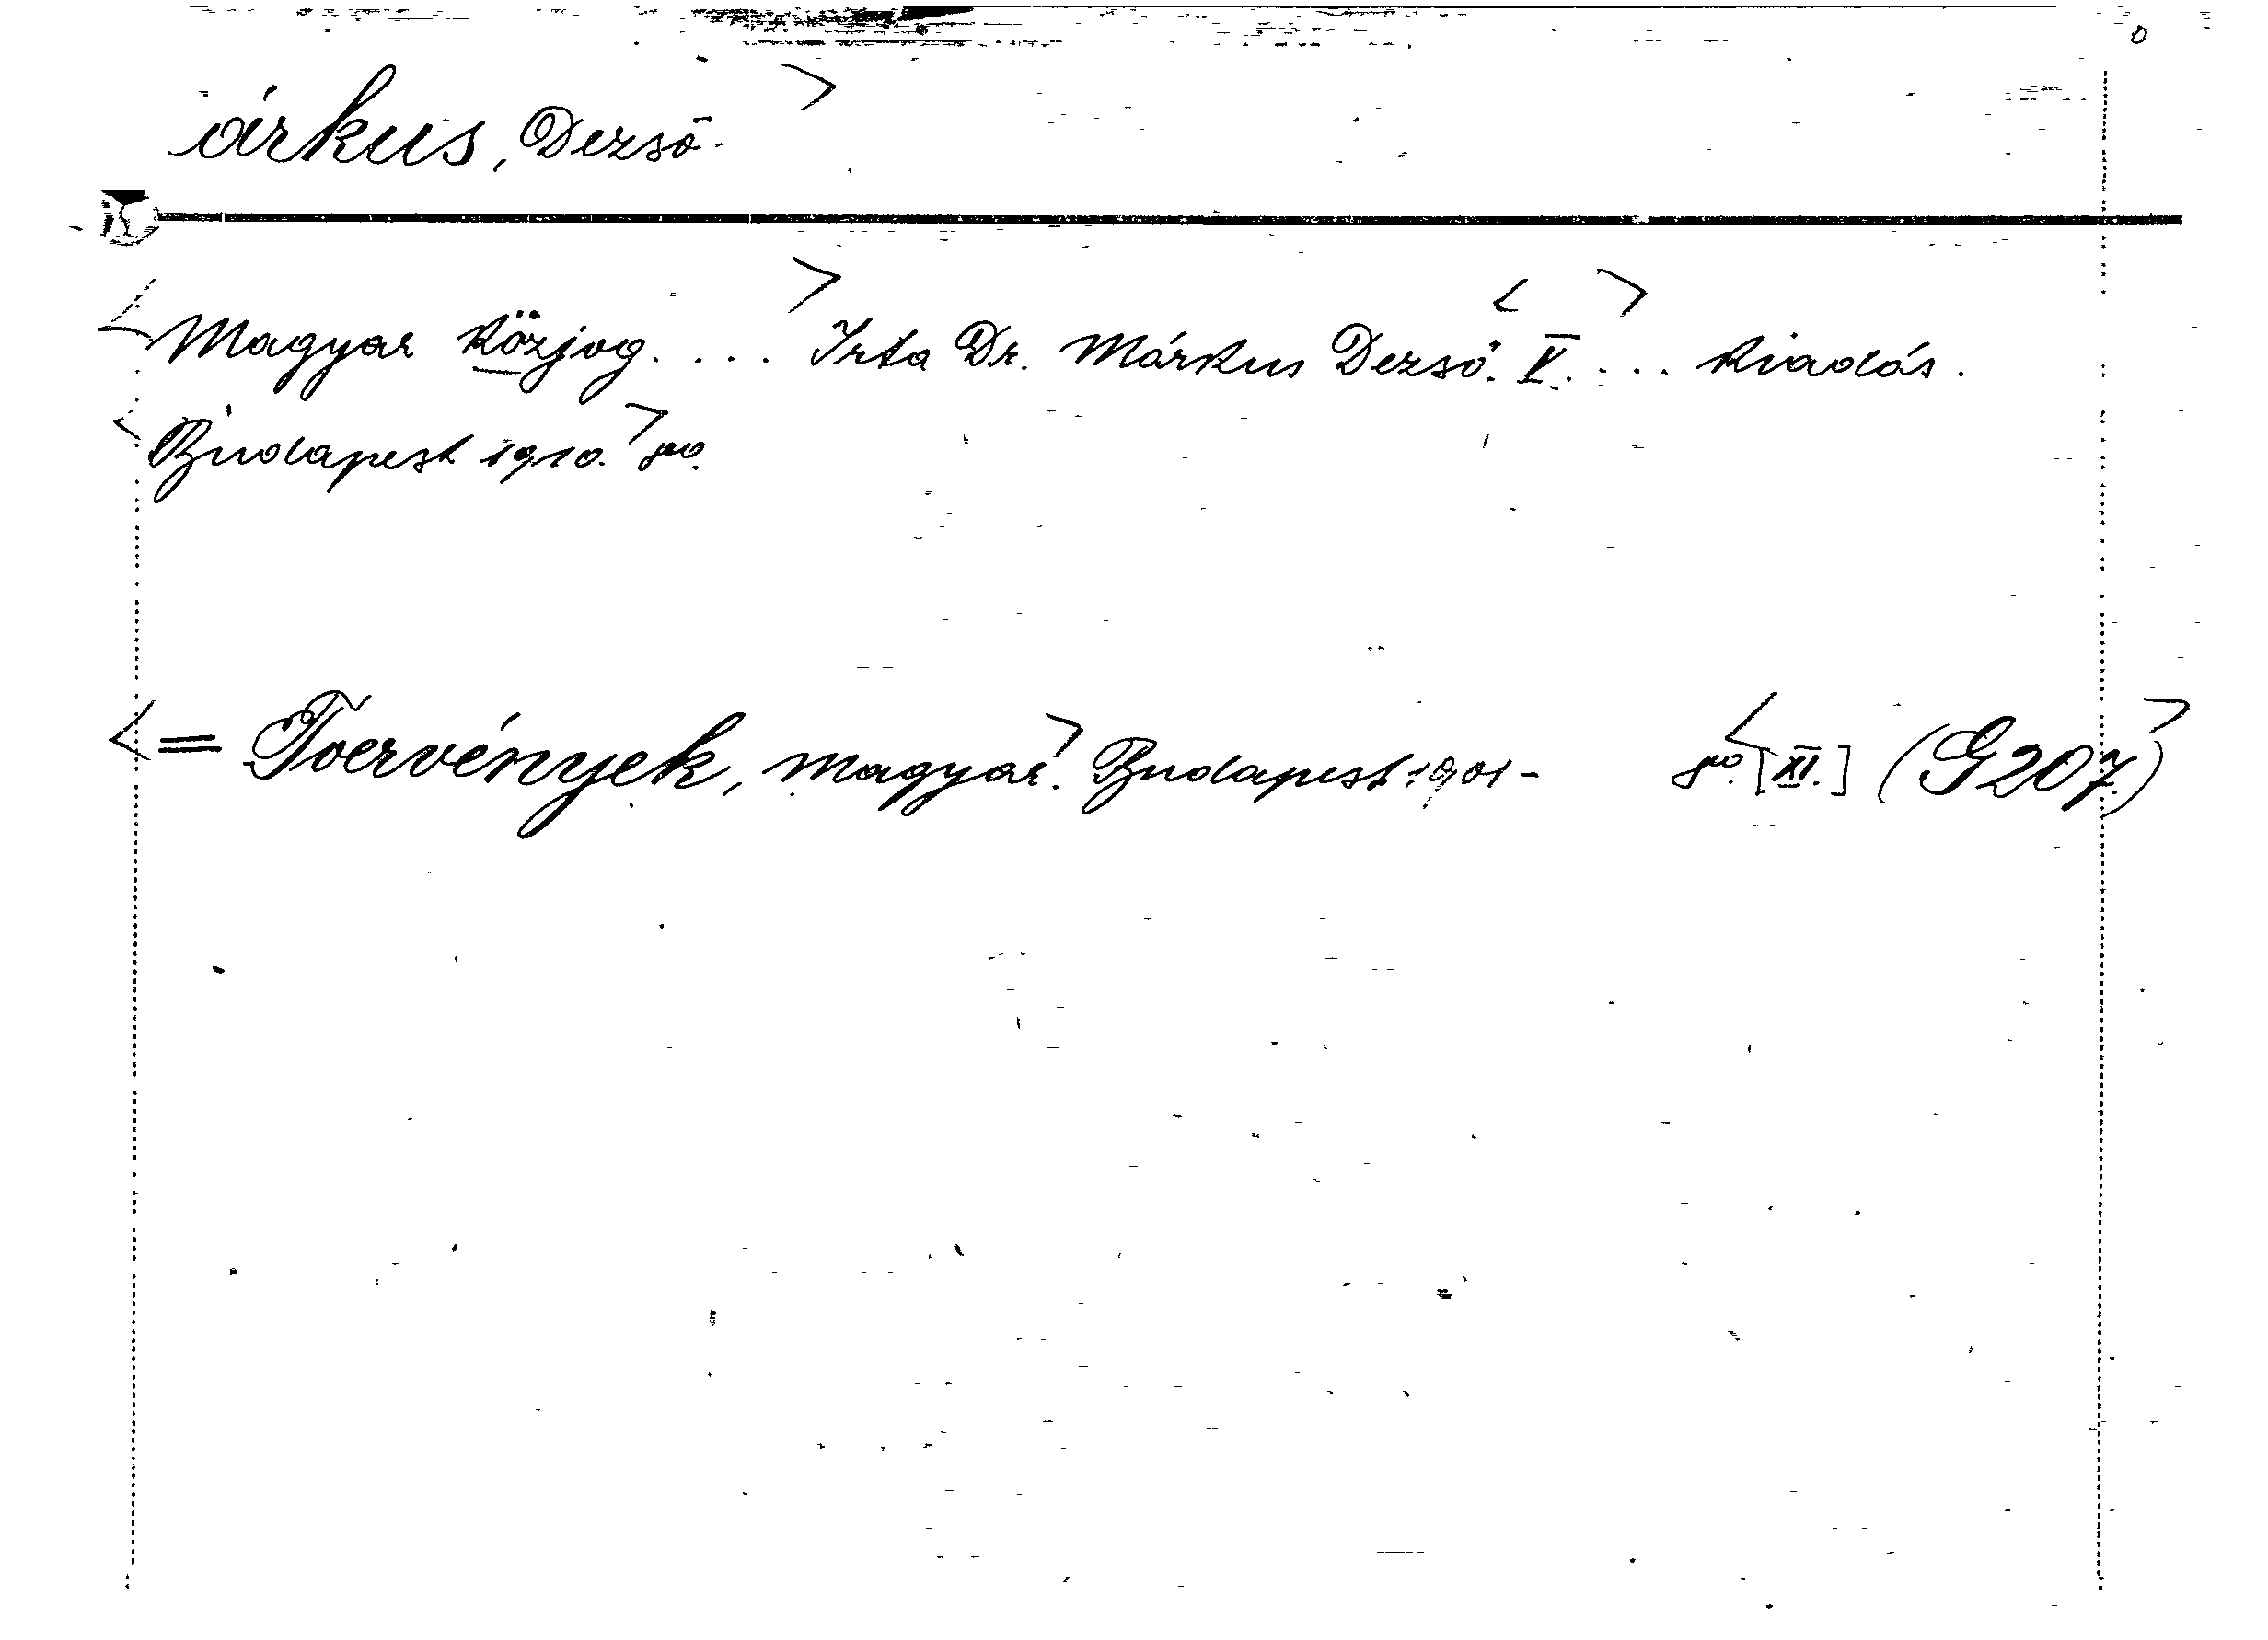 árkus, Dezső
Magyar Közjog. ... Irta Dr. Márkus Dezső. V. ... kiadás.
Budapest 1910. 8o.
= Toervények, magyar. Budapest 1901- 8o. [XI.] (G207.)